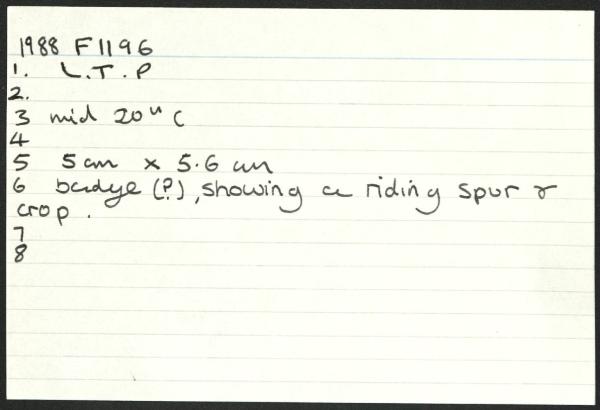 1988 F1196
1. L.T.P
2.
3 mid 20th C
4
5 5 cm x 5.6 cm
6 badge (?), showing a riding spur &
crop.
7
8